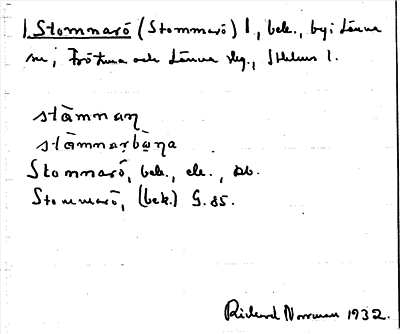 1. Stommarö (Stommarö) 1, bek., by; Länna
sn; Frötuna och Länna skg., Sthlms l.
stàmnaŋ
stàmnarbàŋa
Stommarö, bek., ek., Db.
Stommarö, (bek.) G. 85.
Rickard Norrman 1932.